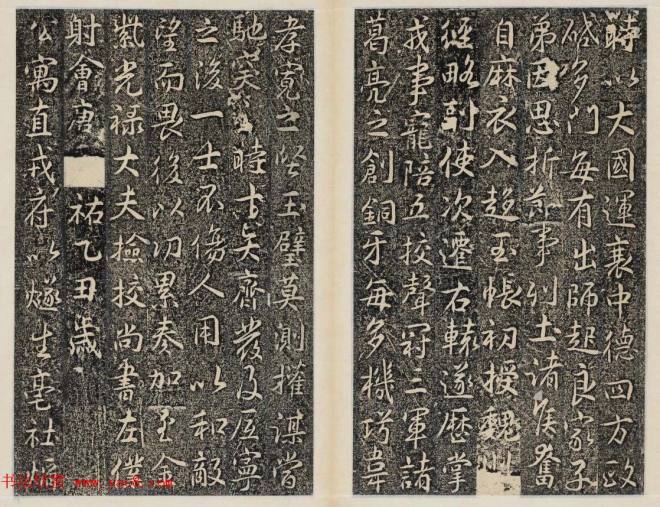 時以大國運衰中德四方政
礆多門每有出師起良家子
弟因思折節事列土諸侯奮
自麻衣入趍玉帳初授魏州
經略討使次遷右轅遂歷掌
戎事寵陪五校聲冠三軍諸
葛亮之創銅牙每多機巧韋
孝寬之堅玉壁莫測摧謀當
馳突之時士矣齊發及厎寧
之後一士不傷人用以和敵
望而畏後以功累奏加至金
紫光祿大夫檢校尚書左僕
射會唐 祐乙丑歲
公寓直戎府以燧生亳社
www.yac8.com